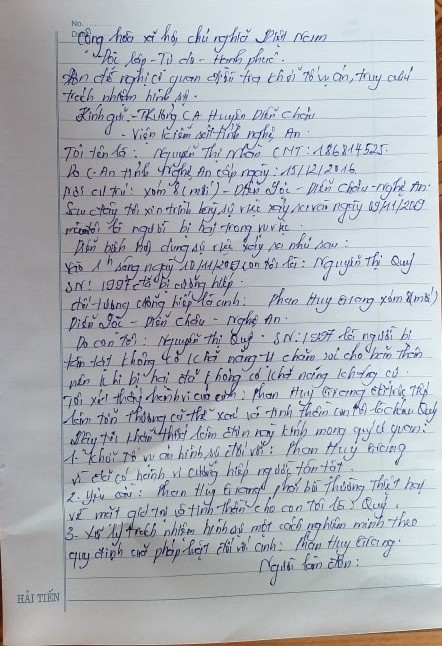 No.
Cộng hòa xã hội chủ nghĩa Việt Nam
Độc lập - Tự do - Hạnh phúc.
Đơn đề nghị cơ quan điều tra khởi tố vụ án, truy cứu
trách nhiệm hình sự.
Kính gửi: - Trưởng CA Huyện Diễn Châu
- Viện kiểm sát tỉnh nghệ An.
Tôi tên là: Nguyễn Thị Nhân CMT: 186814525.
Do C.An tỉnh Nghệ An cấp ngày: 15/12/2016
nơi cư trú: xóm 8 (mới) - Diễn Lộc - Diễn Châu - Nghệ An.
Sau đây tôi xin trình bày sự việc xảy ra vào ngày 09/11/2019
là người bị hại trong vụ việc.
Diễn biến nội dung sự việc xảy ra như sau:
vào 1h sáng ngày 10/11/2019 con tôi là: Nguyễn Thị Quý
SN: 1997 đã bị cưỡng hiếp.
đối tượng cưỡng hiếp là anh: Phan Huy Giang xóm 8 (mới)
Diễn Lộc - Diễn Châu - Nghệ An.
Do con tôi: Nguyễn Thị Quý. SN: 1997 là người bị
tàn tật không có khả năng tự chăm sóc cho bản thân
nên khi bị hại đã không có khả năng kháng cự.
Tôi xét thấy hành vi của anh: Phan Huy Giang đã trực tiếp
làm tổn thương cơ thể và tinh thần con tôi là cháu Quý
Nay tôi khẩn thiết làm đơn này kính mong quý cơ quan:
1. Khởi tố vụ án hình sự đối với: Phan Huy Giang
vì đã có hành vi cưỡng hiếp người tàn tật.
2- yêu cầu: Phan Huy Giang phải bồi thường thiệt hại
về mặt giá trị và tinh thần cho con tôi là: Quý.
3- xử lý trách nhiệm hình sự một cách nghiêm minh theo
quy định của pháp luật đối với anh: Phan Huy Giang.
Người làm đơn:
HẢI TIẾN